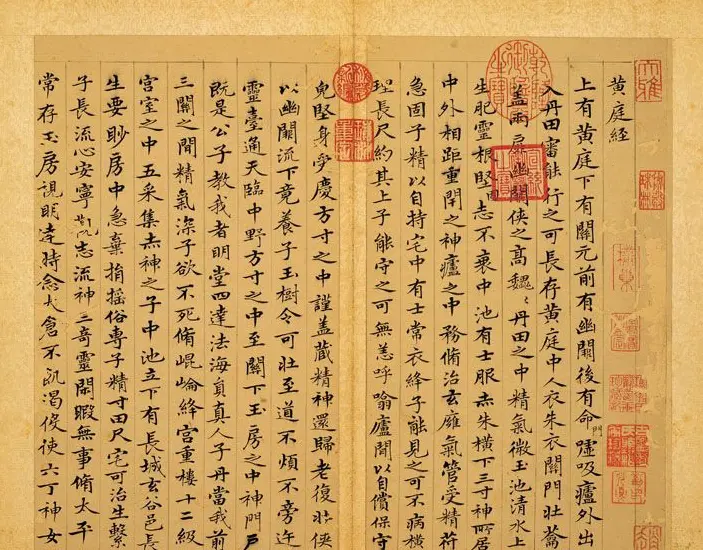 黄庭経
上有黄庭下有關元前有幽闕後有命門噓吸廬外出
入丹田審能行之可長存黄庭中人衣朱衣關門壮蘥
盖兩扉幽闕侠之高魏〻丹田之中精氣微玉池清水上
生肥靈根堅志不衰中池有士服赤朱横下三寸神所居
中外相距重閇之神廬之中務脩治玄廱氣管受精苻
急固子精以自持宅中有士常衣絳子能見之可不病横
理長尺約其上子能守之可無恙呼噏廬間以自償保守
皃堅身受慶方寸之中謹盖藏精神還歸老復壮侠
以幽闕流下竟養子玉樹令可壮至道不煩不旁迕
靈臺通天臨中野方寸之中至關下玉房之中神門戶
既是公子教我者明堂四達法海員真人子丹當我前
三關之間精氣深子欲不死脩崐崘絳宫重樓十二級
宫室之中五采集赤神之子中池立下有長城玄谷邑長
生要眇房中急棄捐揺俗専子精寸田尺宅可治生繫
子長流心安寧志流神三奇靈閑暇無事脩太平
常存玉房視明達時念大倉不飢渴伇使六丁神女